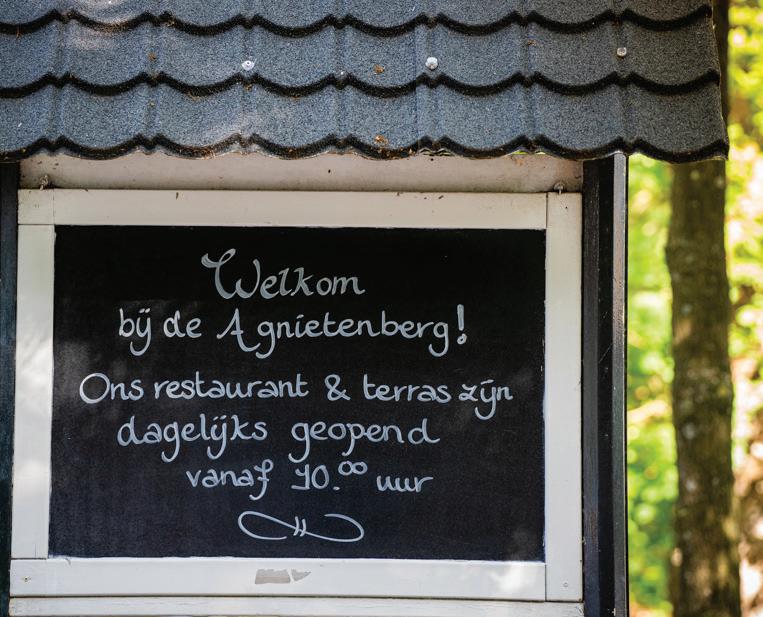 Welkom
bij de Agnietenberg!
Ons restaurant & terras zijn
dagelijks geopend
vanaf 10.00 uur